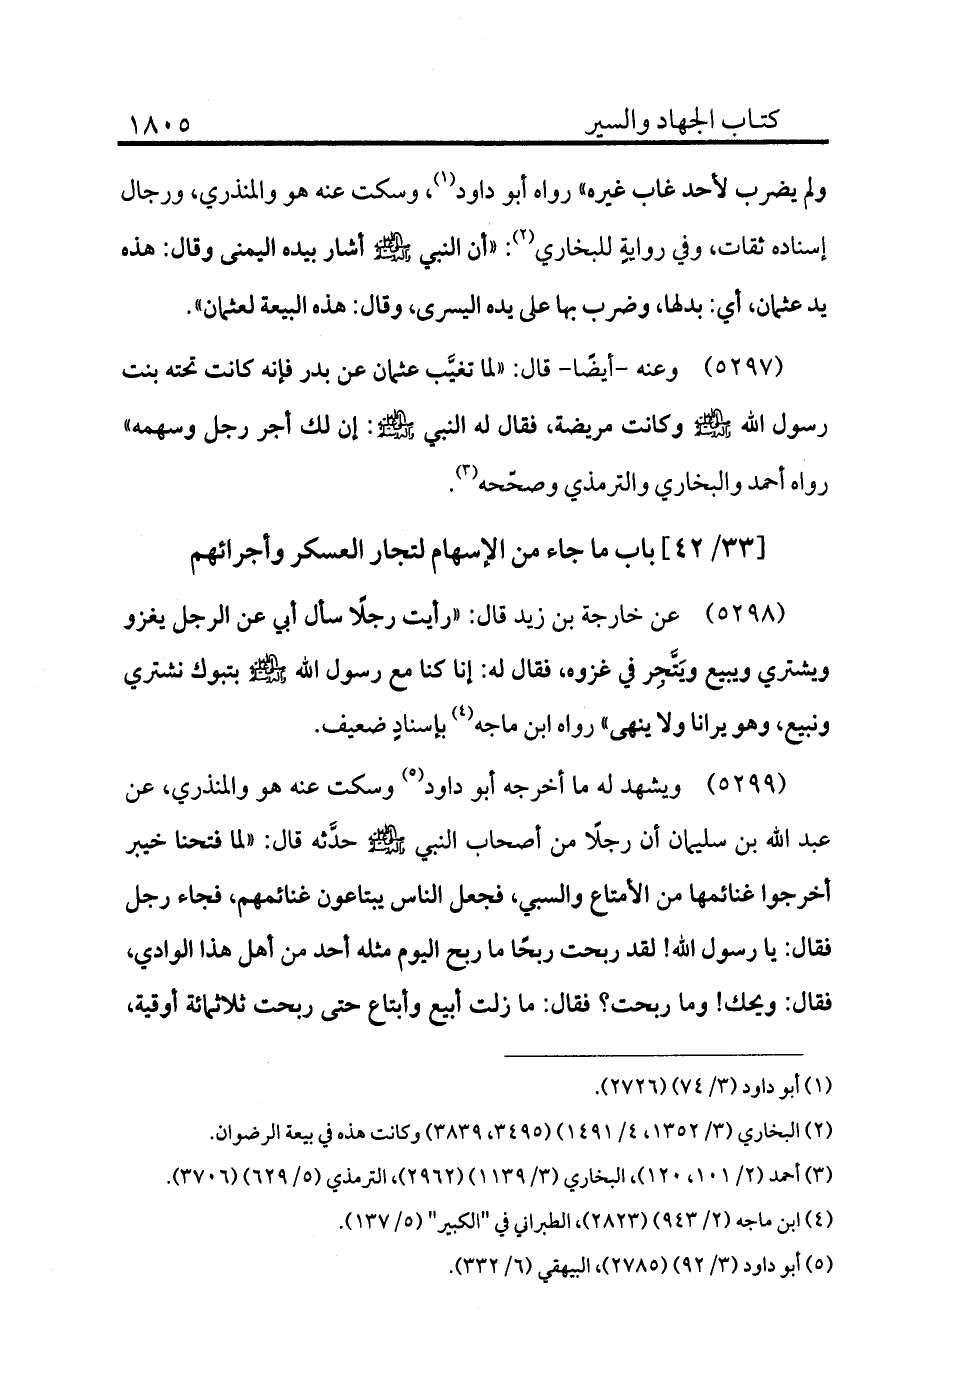 كتاب الجهاد والسير ١٨٠٥
ولم يضرب لأحد غاب غيره» رواه أبو داود(١)، وسكت عنه هو والمنذري، ورجال
إسناده ثقات، وفي روايةٍ للبخاري(٢): «أن النبي ﷺ أشار بيده اليمنى وقال: هذه
يد عثمان، أي: بدلها، وضرب بها على يده اليسرى، وقال: هذه البيعة لعثمان».
(٥٢٩٧) وعنه -أيضًا- قال: «لما تغيَّب عثمان عن بدر فإنه كانت تحته بنت
رسول الله ﷺ وكانت مريضة، فقال له النبي ﷺ: إن لك أجر رجل وسهمه»
رواه أحمد والبخاري والترمذي وصحّحه(٣).
[٣٣/ ٤٢] باب ما جاء من الإسهام لتجار العسكر وأجرائهم
(٥٢٩٨) عن خارجة بن زيد قال: «رأيت رجلًا سأل أبي عن الرجل يغزو
ويشتري ويبيع ويَتَّجِر في غزوه، فقال له: إنا كنا مع رسول الله ﷺ بتبوك نشتري
ونبيع، وهو يرانا ولا ينهى» رواه ابن ماجه(٤) بإسنادٍ ضعيف.
(٥٢٩٩) ويشهد له ما أخرجه أبو داود(٥) وسكت عنه هو والمنذري، عن
عبد الله بن سليمان أن رجلًا من أصحاب النبي ﷺ حدَّثه قال: «لما فتحنا خيبر
أخرجوا غنائمها من الأمتاع والسبي، فجعل الناس يبتاعون غنائمهم، فجاء رجل
فقال: يا رسول الله! لقد ربحت ربحًا ما ربح اليوم مثله أحد من أهل هذا الوادي،
فقال: ويحك! وما ربحت؟ فقال: ما زلت أبيع وأبتاع حتى ربحت ثلاثمائة أوقية،
(١) أبو داود (٣/ ٧٤) (٢٧٢٦).
(٢) البخاري (٣/ ١٣٥٢، ٤/ ١٤٩١) (٣٤٩٥، ٣٨٣٩) وكانت هذه في بيعة الرضوان.
(٣) أحمد (٢/ ١٠١، ١٢٠)، البخاري (٣/ ١١٣٩) (٢٩٦٢)، الترمذي (٥/ ٦٢٩) (٣٧٠٦).
(٤) ابن ماجه (٢/ ٩٤٣) (٢٨٢٣)، الطبراني في "الكبير" (٥/ ١٣٧).
(٥) أبو داود (٣/ ٩٢) (٢٧٨٥)، البيهقي (٦/ ٣٣٢).